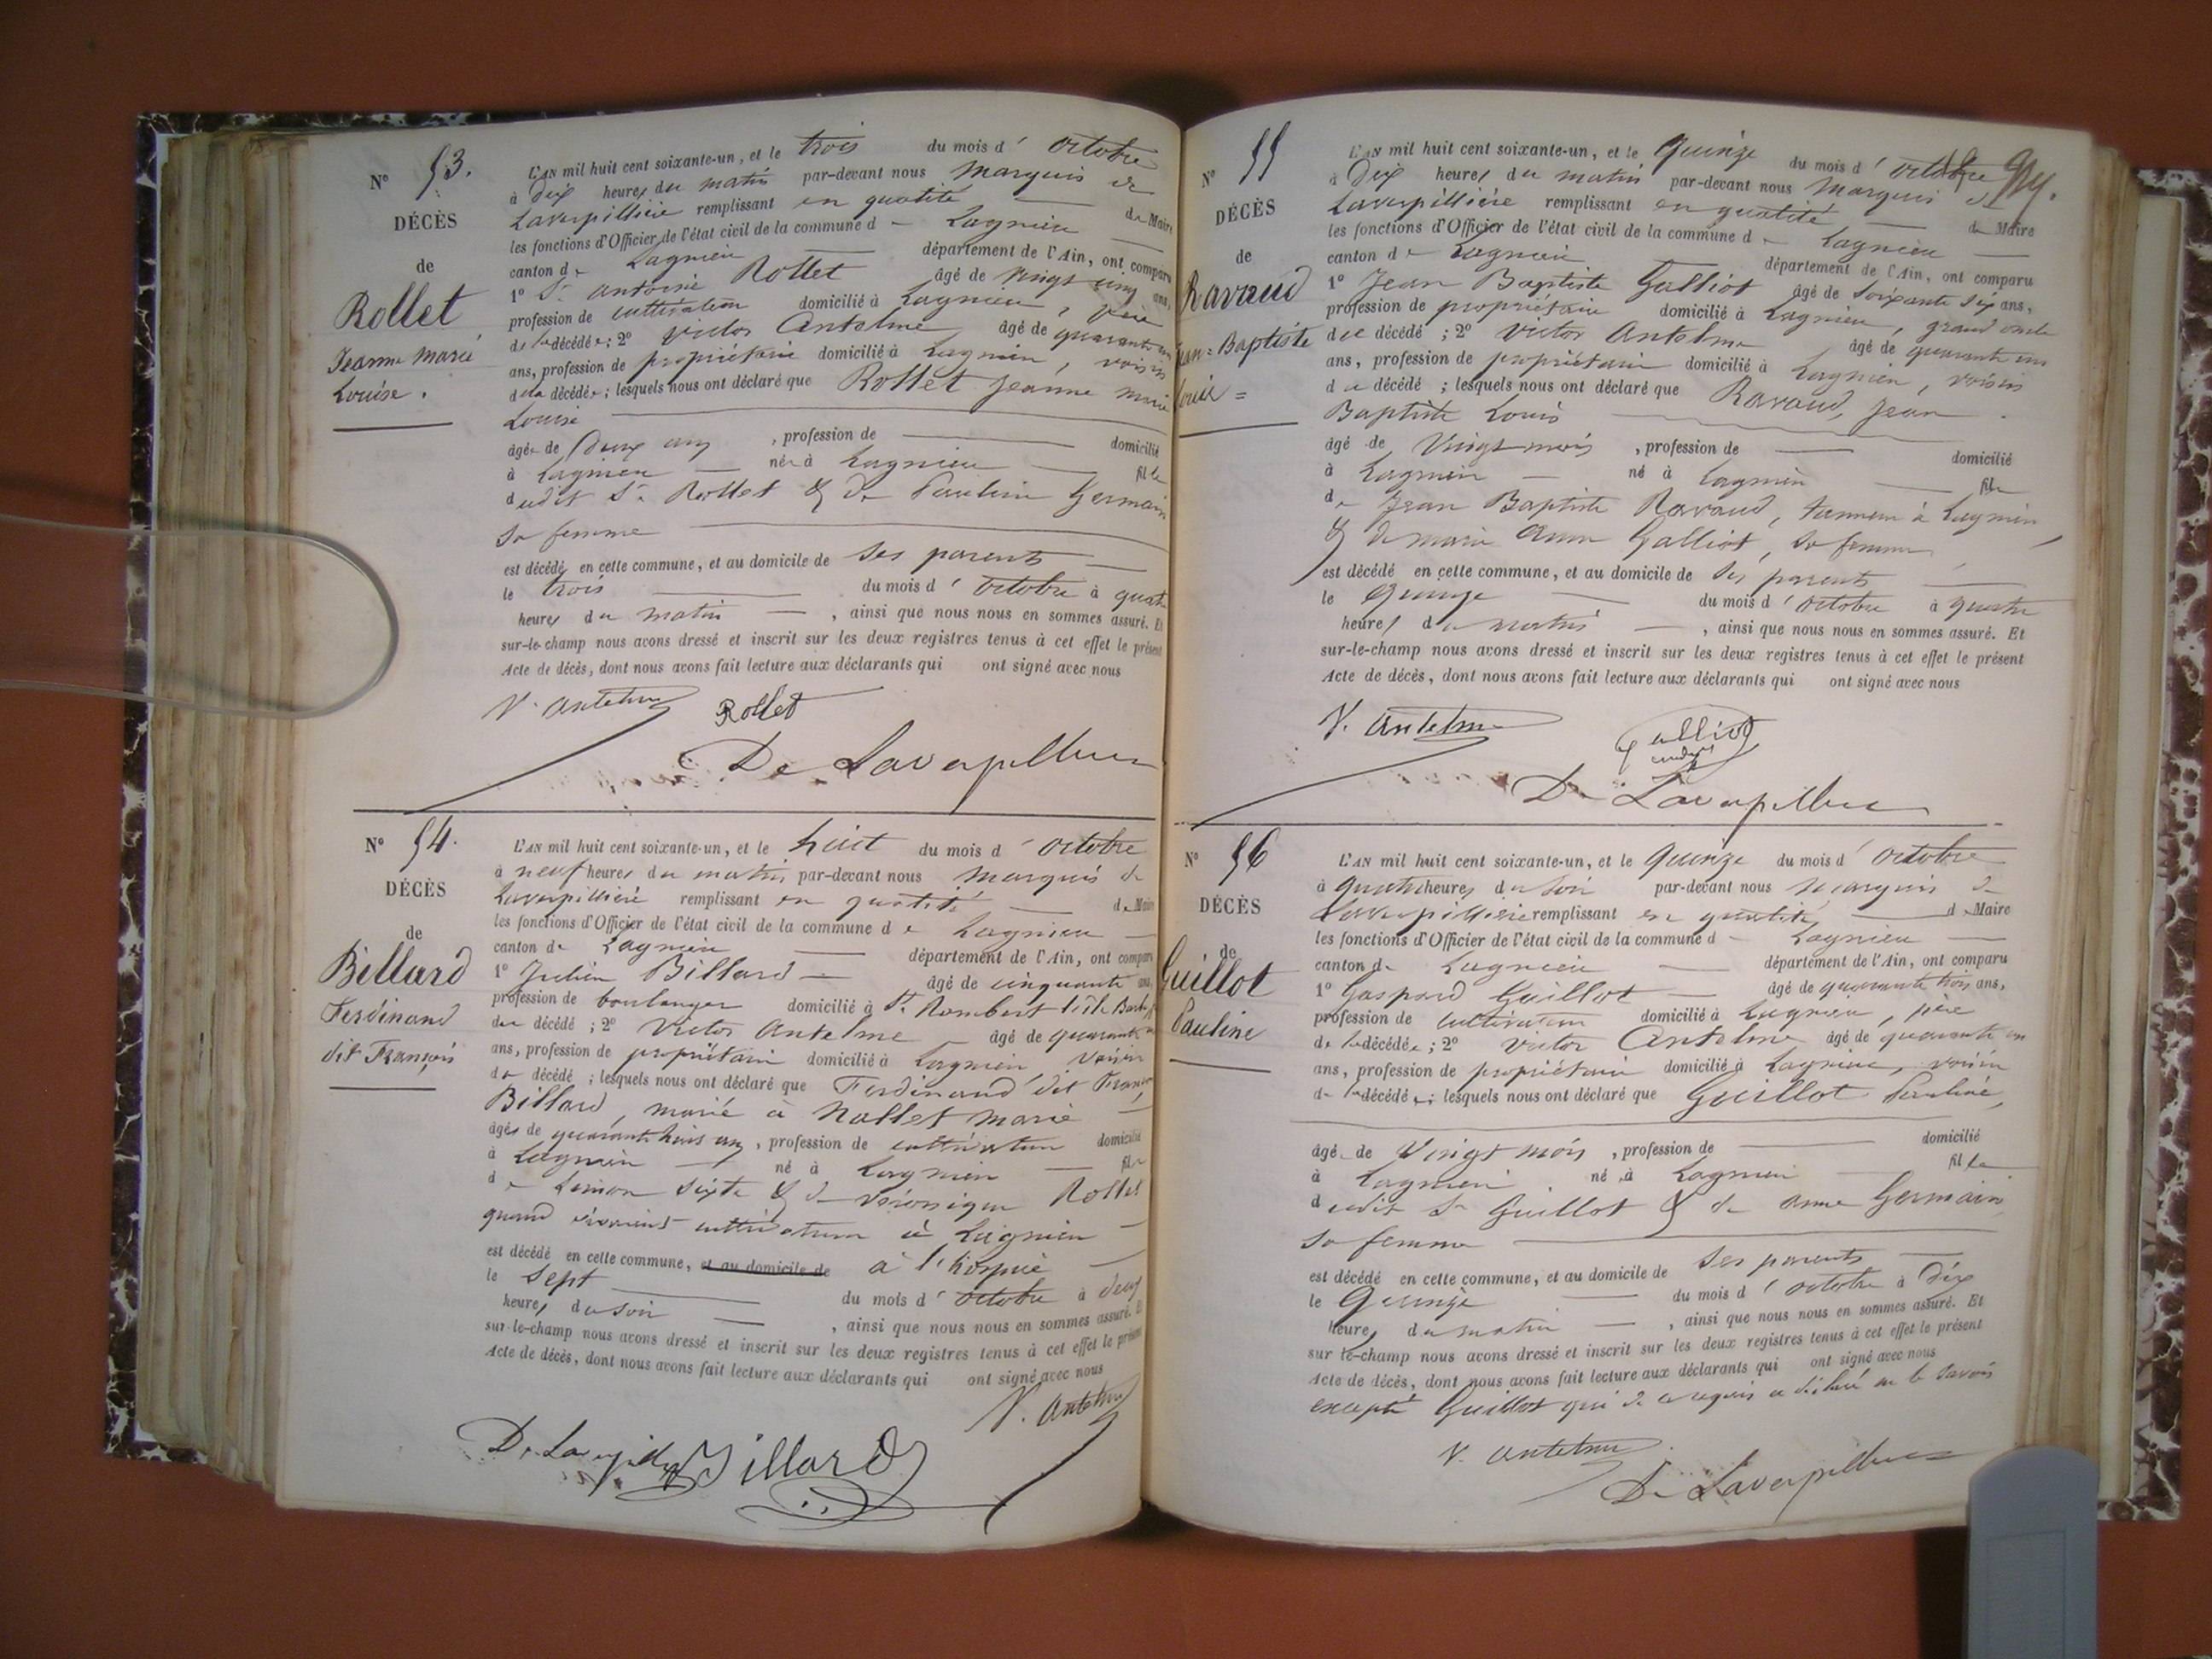 N° 53.
DÉCÈS
de
Rollet
Jeanne Marie
Louise.
L'AN mil huit cent soixante-un, et le trois du mois d' octobre
à Dix heures du matin par-devant nous Marquis de
Laverpillière remplissant en qualité de Maire
les fonctions d'Officier de l'état civil de la commune d Lagnieu
canton de Lagnieu département de l'Ain, ont comparu
1° Sr antoine Rollet âgé de vingt cinq ans,
profession de cultivateur domicilié à Lagnieu, père
de la décédée; 2° Victor Antelme âgé de quarante un
ans, profession de propriétaire domicilié à Lagnieu, voisin
de la décédée; lesquels nous ont déclaré que Rollet Jeanne marie
Louise
âgée de Deux ans, profession de domicilié
à Lagnieu née à Lagnieu fille
dudit Sr Rollet & de Pauline Germain
sa femme
est décédé en cette commune, et au domicile de ses parents
le trois du mois d' octobre à quatre
heures du matin, ainsi que nous nous en sommes assuré. Et
sur-le-champ nous avons dressé et inscrit sur les deux registres tenus à cet effet le présent
Acte de décès, dont nous avons fait lecture aux déclarants qui ont signé avec nous
V. Antelme Rollet
De Laverpilliere
N° 54.
DÉCÈS
de
Billard
Ferdinand
dit François
L'AN mil huit cent soixante-un, et le huit du mois d' octobre
à neuf heures du matin par-devant nous marquis de
Laverpillière remplissant en qualité de Maire
les fonctions d'Officier de l'état civil de la commune de Lagnieu
canton de Lagnieu département de l'Ain, ont comparu
1° Julien Billard âgé de cinquante ans,
profession de boulanger domicilié à St. Rambert
du décédé; 2° Victor Antelme âgé de quarante un
ans, profession de propriétaire domicilié à Lagnieu, voisin
du décédé; lesquels nous ont déclaré que Ferdinand dit François
Billard, marié à Rollet marie
âgé de ans, profession de cultivateur domicilié
à Lagnieu né à Lagnieu fils
de Simon Sixte & de Véronique Rollet
quand vivaient cultivateurs à Lagnieu
est décédé en cette commune, et au domicile de à l'hospice
le sept du mois d' octobre à deux
heures du soir, ainsi que nous nous en sommes assuré. Et
sur-le-champ nous avons dressé et inscrit sur les deux registres tenus à cet effet le présent
Acte de décès, dont nous avons fait lecture aux déclarants qui ont signé avec nous
V. Antelme
De Laverpilliere Billard
N° 55
DÉCÈS
de
Ravaud
Jean=Baptiste
Louis=
L'AN mil huit cent soixante-un, et le Quinze du mois d' octobre
à Dix heures du matin par-devant nous Marquis de
Laverpillière remplissant en qualité de Maire
les fonctions d'Officier de l'état civil de la commune d Lagnieu
canton de Lagnieu département de l'Ain, ont comparu
1° Jean Baptiste Galliot âgé de soixante six ans,
profession de propriétaire domicilié à Lagnieu, grand oncle
du décédé; 2° Victor Antelme âgé de quarante un
ans, profession de propriétaire domicilié à Lagnieu, voisin
du décédé; lesquels nous ont déclaré que Ravaud Jean
Baptiste Louis
âgé de Vingt mois, profession de domicilié
à Lagnieu né à Lagnieu fils
de Jean Baptiste Ravaud, tanneur à Lagnieu
& de marie Anne Galliot, sa femme
est décédé en cette commune, et au domicile de ses parents
le Quinze du mois d' octobre à quatre
heures du matin, ainsi que nous nous en sommes assuré. Et
sur-le-champ nous avons dressé et inscrit sur les deux registres tenus à cet effet le présent
Acte de décès, dont nous avons fait lecture aux déclarants qui ont signé avec nous
V. Antelme Galliot
De Laverpilliere
N° 56
DÉCÈS
de
Guillot
Pauline
L'AN mil huit cent soixante-un, et le Quinze du mois d' octobre
à Quatre heures du soir par-devant nous Marquis de
Laverpillière remplissant en qualité de Maire
les fonctions d'Officier de l'état civil de la commune d Lagnieu
canton de Lagnieu département de l'Ain, ont comparu
1° Gaspard Guillot âgé de quarante trois ans,
profession de cultivateur domicilié à Lagnieu, père
de la décédée; 2° Victor Antelme âgé de quarante un
ans, profession de propriétaire domicilié à Lagnieu, voisin
de la décédée; lesquels nous ont déclaré que Guillot Pauline,
âgé de Vingt mois, profession de domicilié
à Lagnieu né à Lagnieu fille
dudit Sr Guillot & de anne Germain
sa femme
est décédé en cette commune, et au domicile de ses parents
le Quinze du mois d' octobre à Dix
heures du matin, ainsi que nous nous en sommes assuré. Et
sur-le-champ nous avons dressé et inscrit sur les deux registres tenus à cet effet le présent
Acte de décès, dont nous avons fait lecture aux déclarants qui ont signé avec nous
excepté Guillot qui de ce requis a déclaré ne le savoir
V. Antelme
De Laverpilliere